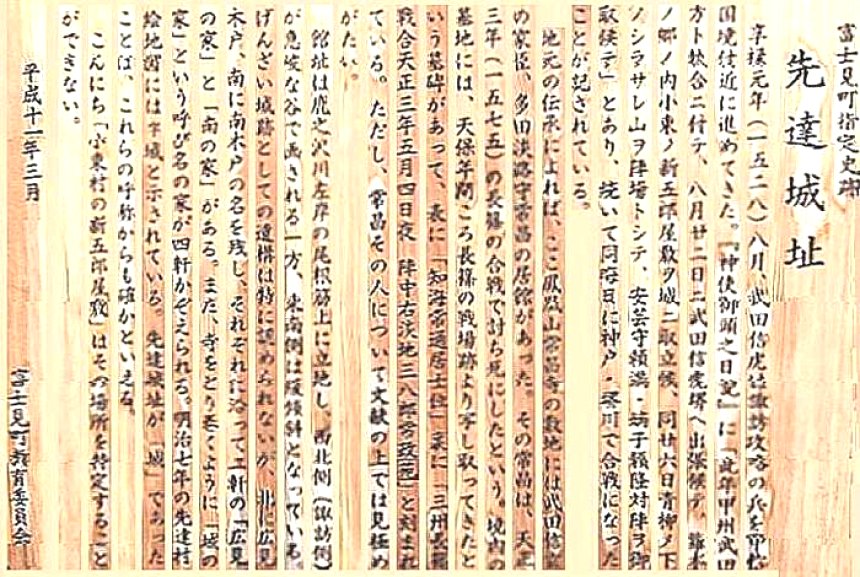 富士見町指定史跡
先達城址
享禄元年(一五二八)八月、武田信虎は諏訪攻略の兵を甲信
国境付近に進めてきた。「神使御頭之日記」に「此年甲州武田
方ト執合ニ付テ、八月廿二日ニ武田信虎堺へ出張候テ、蘿木
ノ郷ノ内小東ノ新五郎屋敷ヲ城ニ取立候、同廿六日青柳ノ下
ノシラサレ山ヲ陣場トシテ、安芸守頼満・嫡子頼隆対陣ヲ御
取候テ」とあり、続いて同晦日に神戸・堺川で合戦になった
ことが記されている。
地元の伝承によれば、ここ鳳凰山常昌寺の敷地には武田信
の家臣、多田淡路守常昌の居館があった。その常昌は、天正
三年(一五七五)の長篠の合戦で討ち死にしたという。境内の
墓地には、天保年間ころ長篠の戦場跡より写し取ってきたと
いう墓碑があって、表に「知海常通居士位」裏に「三州長篠
戦合天正三年五月四日夜 陣中右淡地三八郎秀政死」と刻まれ
ている。ただし、常昌その人について文献の上では見極め
がたい。
館址は鹿之沢川左岸の尾根筋上に立地し、西北側(諏訪側)
が急峻な谷で画される一方、東南側は緩傾斜となっている。
げんざい城跡としての遺構は特に認められないが、北に広見
木戸、南に南木戸の名を残し、それぞれに沿って二軒の「広見
の家」と「南の家」がある。また、寺をとり巻くように「城の
家」という呼び名の家が四軒かぞえられる。明治七年の先達村
絵地図には字城と示されている。先達城址が「城」であった
ことは、これらの呼称からも確かといえる。
こんにち「小東村の新五郎屋敷」はその場所を特定すること
ができない。
平成十一年三月
富士見町教育委員会